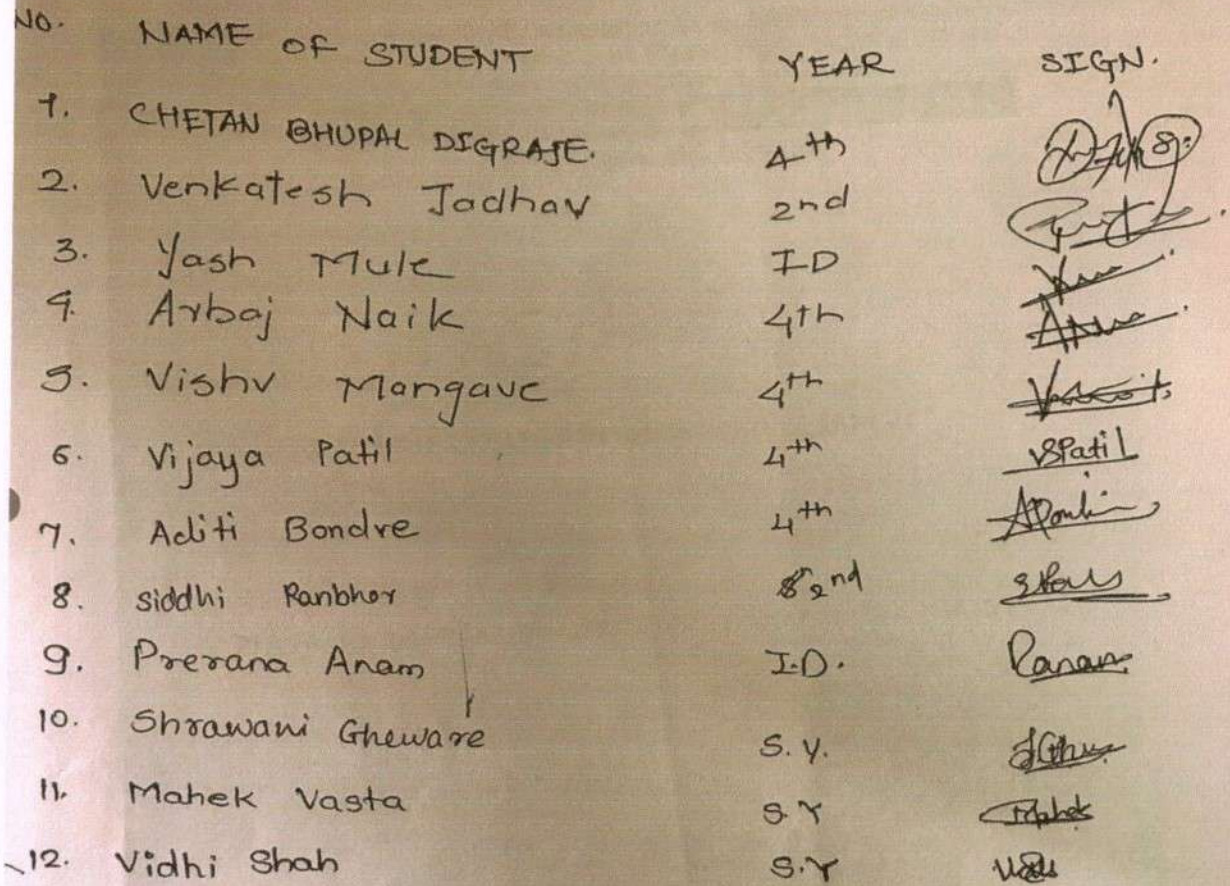 NO. NAME OF STUDENT YEAR SIGN.
1. CHETAN BHUPAL DIGRAJE. 4th
2. Venkatesh Jadhav 2nd
3. Yash Mule ID
4. Arbaj Naik 4th
5. Vishv Mangave 4th
6. Vijaya Patil 4th VSPatil
7. Aditi Bondre 4th
8. Siddhi Ranbhor 2nd
9. Prerana Anam I.D.
10. Shrawani Gheware S.Y.
11. Mahek Vasta S.Y Mahek
12. Vidhi Shah S.Y